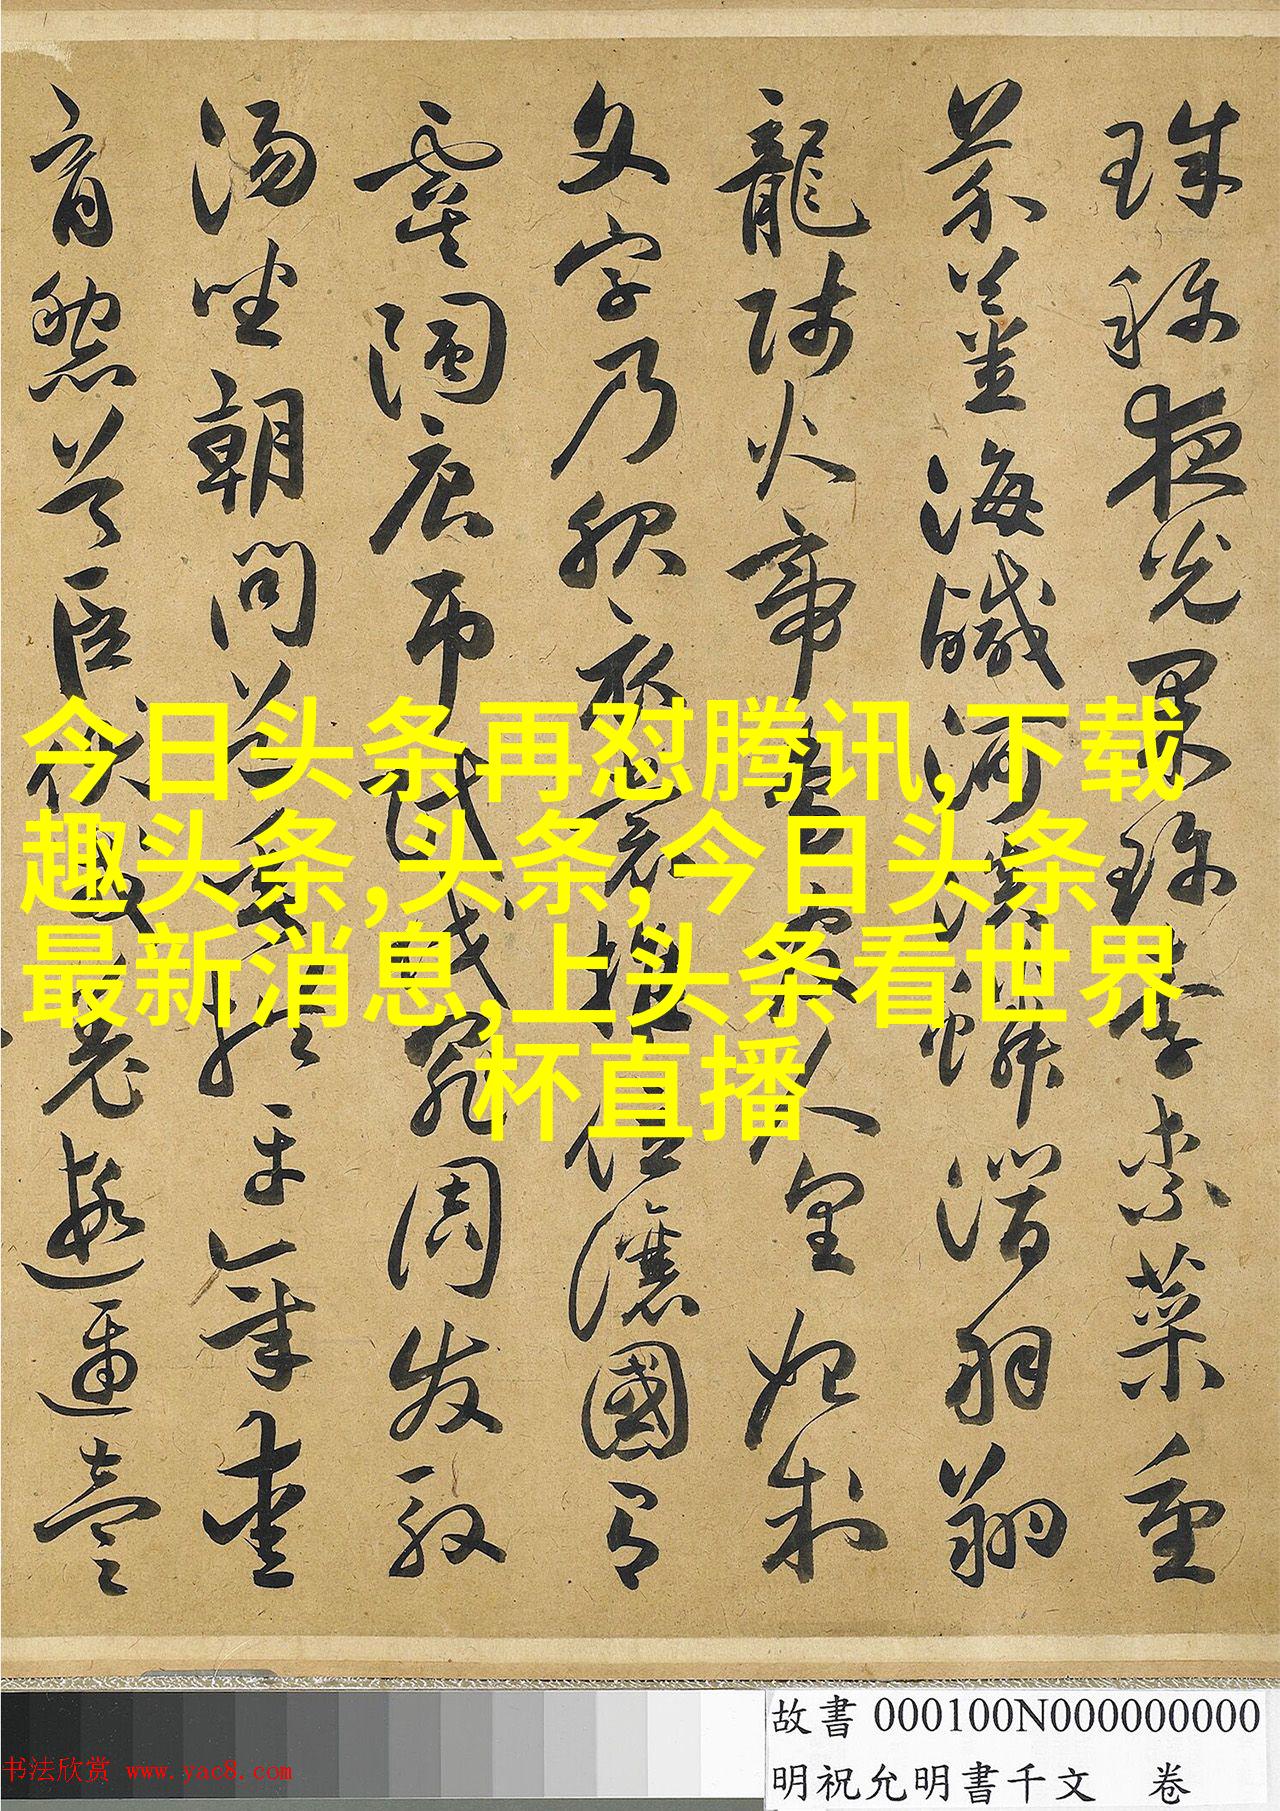 珠稱夜光果珍李柰菜重
芥薑海鹹河淡鱗潛羽翔
龍師火帝鳥官人皇始制
文字乃服衣裳推位讓國有
虞陶唐弔民伐罪周發殷
湯坐朝問道垂拱平章愛
育黎首臣伏戎羌遐邇壹
今日头条再怼腾讯,下载
趣头条,头条,今日头条
最新消息,上头条看世界
杯直播
故書 000100N000000000
明祝允明書千文 卷
书法欣赏 www.yac8.com